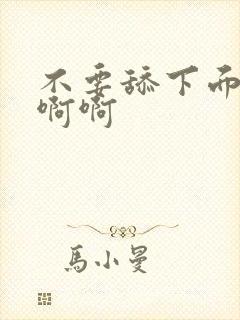 不要舔下面
啊啊
馬小曼